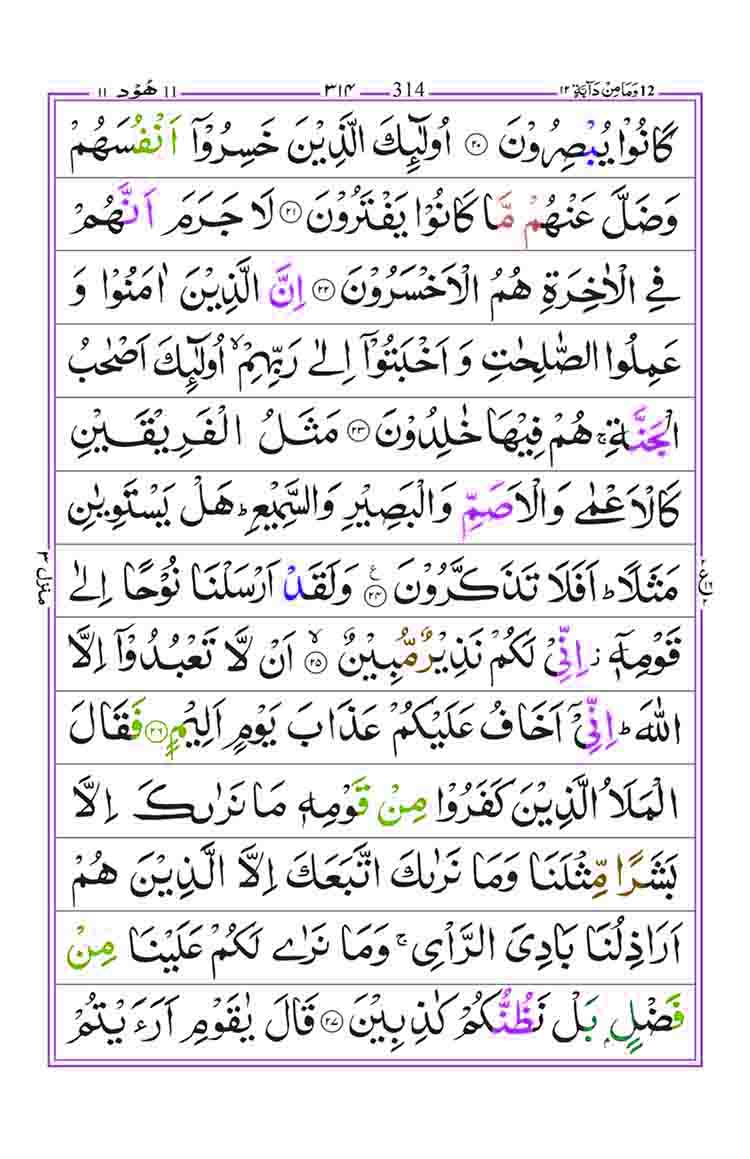 12 وَمَا مِنْ دَآبَّةٍ ۱۲ 314 ۳۱۴ 11 هُوْد ۱۱
كَانُوْا يُبْصِرُوْنَ ﴿۲۰﴾ اُولٰٓئِكَ الَّذِيْنَ خَسِرُوْٓا اَنْفُسَهُمْ
وَضَلَّ عَنْهُمْ مَّا كَانُوْا يَفْتَرُوْنَ ﴿۲۱﴾ لَا جَرَمَ اَنَّهُمْ
فِي الْاٰخِرَةِ هُمُ الْاَخْسَرُوْنَ ﴿۲۲﴾ اِنَّ الَّذِيْنَ اٰمَنُوْا وَ
عَمِلُوا الصّٰلِحٰتِ وَ اَخْبَتُوْٓا اِلٰى رَبِّهِمْ ۙ اُولٰٓئِكَ اَصْحٰبُ
الْجَنَّةِ ۚ هُمْ فِيْهَا خٰلِدُوْنَ ﴿۲۳﴾ مَثَلُ الْفَرِيْقَيْنِ
كَالْاَعْمٰى وَالْاَصَمِّ وَالْبَصِيْرِ وَالسَّمِيْعِ ؕ هَلْ يَسْتَوِيٰنِ
مَثَلًا ؕ اَفَلَا تَذَكَّرُوْنَ ﴿۲۴﴾ ع وَلَقَدْ اَرْسَلْنَا نُوْحًا اِلٰى
قَوْمِهٖٓ ز اِنِّيْ لَكُمْ نَذِيْرٌ مُّبِيْنٌ ۙ ﴿۲۵﴾ اَنْ لَّا تَعْبُدُوْٓا اِلَّا
اللّٰهَ ؕ اِنِّيْٓ اَخَافُ عَلَيْكُمْ عَذَابَ يَوْمٍ اَلِيْمٍ ﴿۲۶﴾ فَقَالَ
الْمَلَاُ الَّذِيْنَ كَفَرُوْا مِنْ قَوْمِهٖ مَا نَرٰىكَ اِلَّا
بَشَرًا مِّثْلَنَا وَمَا نَرٰىكَ اتَّبَعَكَ اِلَّا الَّذِيْنَ هُمْ
اَرَاذِلُنَا بَادِىَ الرَّاْىِ ۚ وَمَا نَرٰى لَكُمْ عَلَيْنَا مِنْ
فَضْلٍۭ بَلْ نَظُنُّكُمْ كٰذِبِيْنَ ﴿۲۷﴾ قَالَ يٰقَوْمِ اَرَءَيْتُمْ
منزل ۳